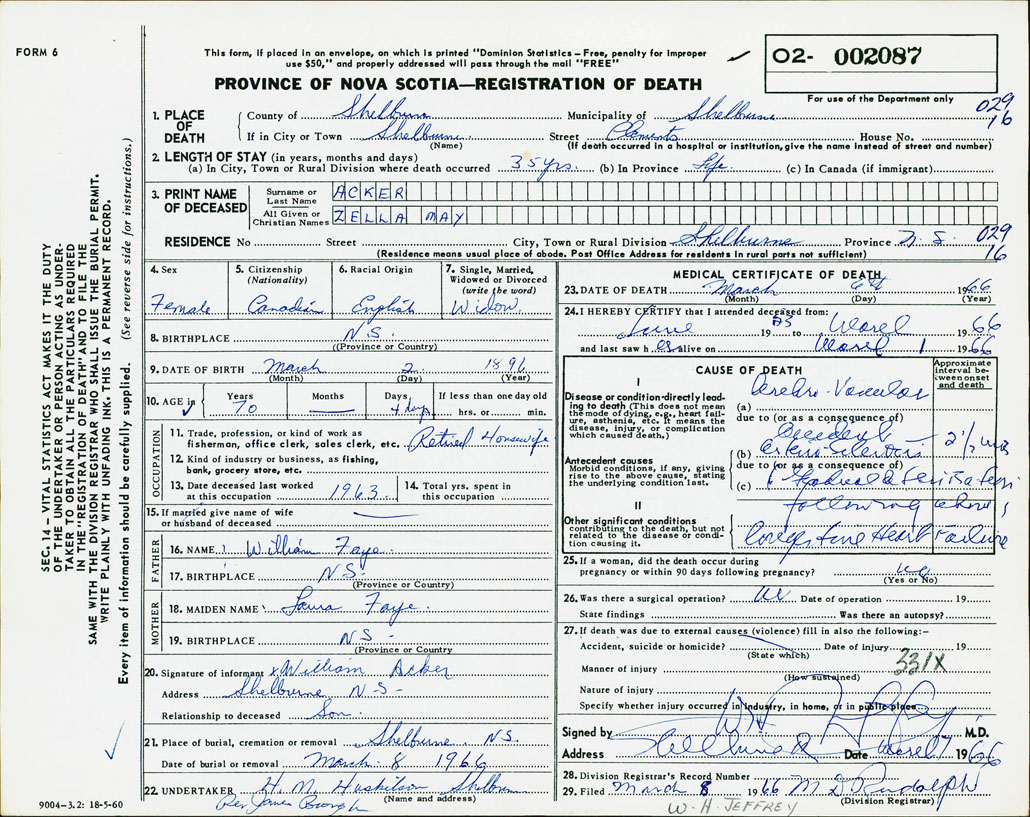 FORM 6
This form, if placed in an envelope, on which is printed "Dominion Statistics – Free, penalty for improper
use $50," and properly addressed will pass through the mail "FREE"
O2- 002087
PROVINCE OF NOVA SCOTIA—REGISTRATION OF DEATH
For use of the Department only
029
16
1. PLACE OF DEATH
County of Shelburne Municipality of Shelburne
If in City or Town Shelburne Street Clements House No.
(Name) (If death occurred in a hospital or institution, give the name instead of street and number)
2. LENGTH OF STAY (in years, months and days)
(a) In City, Town or Rural Division where death occurred 35 yrs. (b) In Province Life (c) In Canada (if immigrant)
3. PRINT NAME OF DECEASED
Surname or Last Name ACKER
All Given or Christian Names ZELLA MAY
RESIDENCE No Street City, Town or Rural Division Shelburne Province N.S. 029
(Residence means usual place of abode. Post Office Address for residents in rural parts not sufficient) 16
4. Sex
Female
5. Citizenship
(Nationality)
Canadian
6. Racial Origin
English
7. Single, Married, Widowed or Divorced
(write the word)
Widow
8. BIRTHPLACE N.S.
(Province or Country)
9. DATE OF BIRTH March 2 1896
(Month) (Day) (Year)
10. AGE in
Years
70
Months
Days
4 days
If less than one day old
hrs. or min.
OCCUPATION
11. Trade, profession, or kind of work as
fisherman, office clerk, sales clerk, etc. Retired Housewife
12. Kind of industry or business, as fishing,
bank, grocery store, etc.
13. Date deceased last worked
at this occupation 1963
14. Total yrs. spent in
this occupation
15. If married give name of wife
or husband of deceased
FATHER
16. NAME William Faye
17. BIRTHPLACE N.S.
(Province or Country)
MOTHER
18. MAIDEN NAME Laura Faye
19. BIRTHPLACE N.S.
(Province or Country)
20. Signature of informant x William Acker
Address Shelburne N.S.
Relationship to deceased Son.
21. Place of burial, cremation or removal Shelburne N.S.
Date of burial or removal March 8 1966
22. UNDERTAKER H. M. Huskilson Shelburne
(Name and address)
Rev James Brough
MEDICAL CERTIFICATE OF DEATH
23. DATE OF DEATH March 6th 1966
(Month) (Day) (Year)
24. I HEREBY CERTIFY that I attended deceased from:
June 19 to March 1966
and last saw her alive on March 1 1966
CAUSE OF DEATH
Approximate interval between onset and death
I
Disease or condition directly leading to death (This does not mean the mode of dying, e.g., heart failure, asthenia, etc. It means the disease, injury, or complication which caused death.)
(a) Cerebro-Vascular
due to (or as a consequence of)
accident
Antecedent causes
Morbid conditions, if any, giving rise to the above cause, stating the underlying condition last.
(b) 2 1/2
due to (or as a consequence of)
(c)
following
II
Other significant conditions contributing to the death, but not related to the disease or condition causing it.
Congestive Heart Failure
25. If a woman, did the death occur during
pregnancy or within 90 days following pregnancy? no
(Yes or No)
26. Was there a surgical operation? no Date of operation 19
State findings Was there an autopsy?
27. If death was due to external causes (violence) fill in also the following:–
Accident, suicide or homicide? Date of injury 19
(State which)
331X
Manner of injury
(How sustained)
Nature of injury
Specify whether injury occurred in industry, in home, or in public place
Signed by M.D.
Address Shelburne Date March 7 1966
28. Division Registrar's Record Number
29. Filed March 8 1966 M D Rudolph
(Division Registrar)
W. H. JEFFREY
SEC. 14 – VITAL STATISTICS ACT MAKES IT THE DUTY
OF THE UNDERTAKER OR PERSON ACTING AS UNDER-
TAKER TO OBTAIN ALL THE PARTICULARS REQUIRED
IN THE "REGISTRATION OF DEATH" AND TO FILE THE
SAME WITH THE DIVISION REGISTRAR WHO SHALL ISSUE THE BURIAL PERMIT.
WRITE PLAINLY WITH UNFADING INK. THIS IS A PERMANENT RECORD.
Every item of information should be carefully supplied. (See reverse side for instructions.)
9004–3.2: 18-5-60